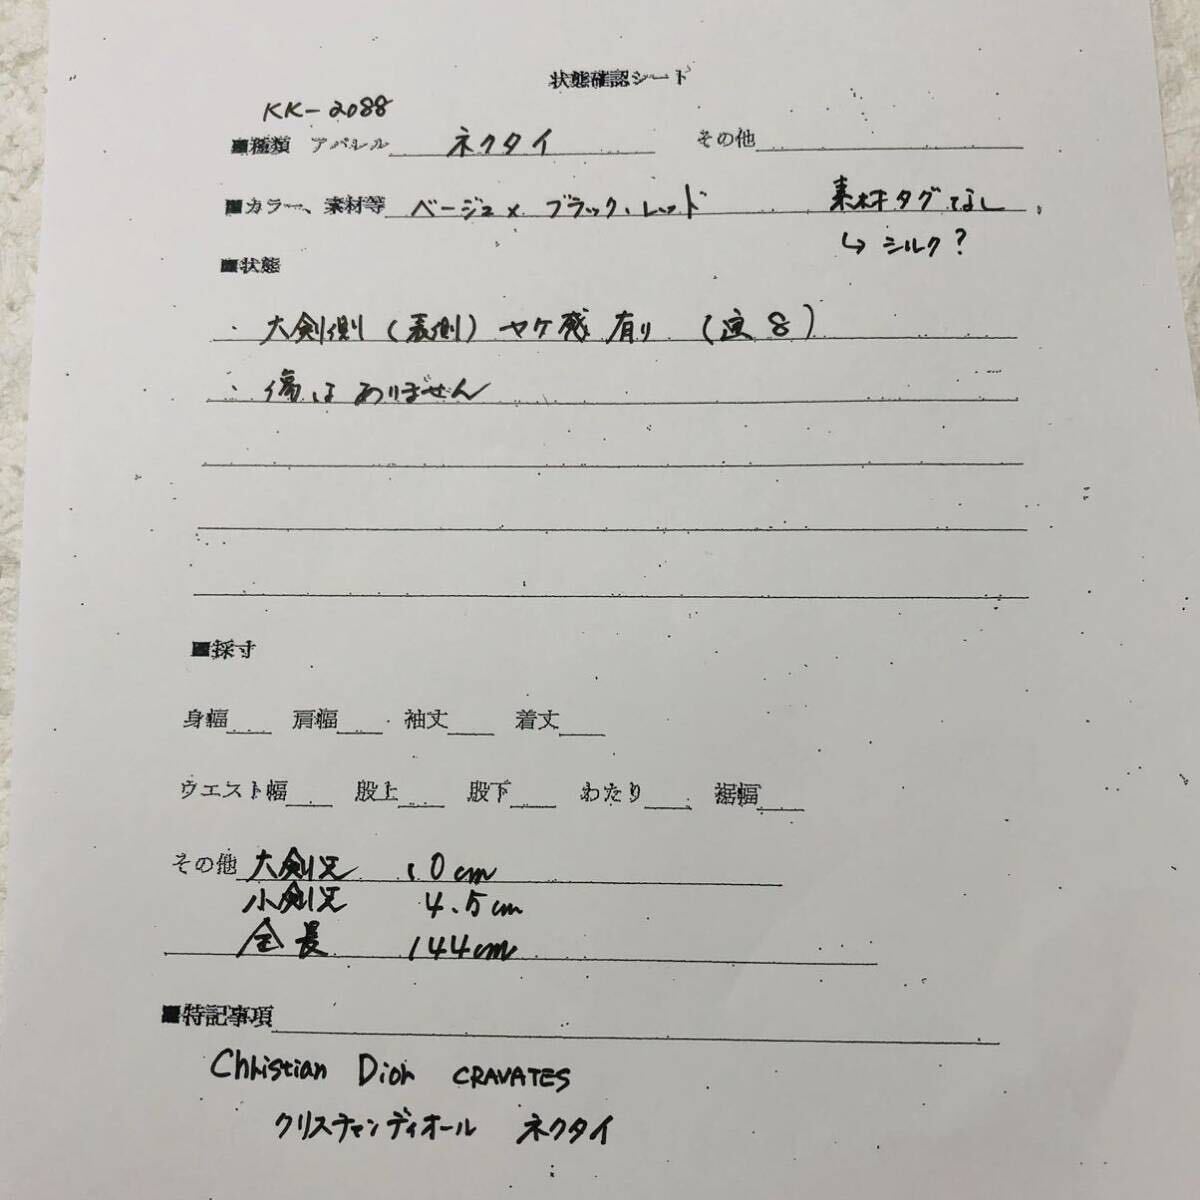 状態確認シート
KK-2088
■種類 アパレル ネクタイ その他
■カラー、素材等 ベージュ×ブラック、レッド 素材タグなし
↳シルク?
■状態
・大剣側(裏側)ヤケ感有り(画8)
・傷はありません
■採寸
身幅 肩幅 袖丈 着丈
ウエスト幅 股上 股下 わたり 裾幅
その他 大剣巾 10cm
小剣巾 4.5cm
全長 144cm
■特記事項
Christian Dior CRAVATES
クリスチャンディオール ネクタイ